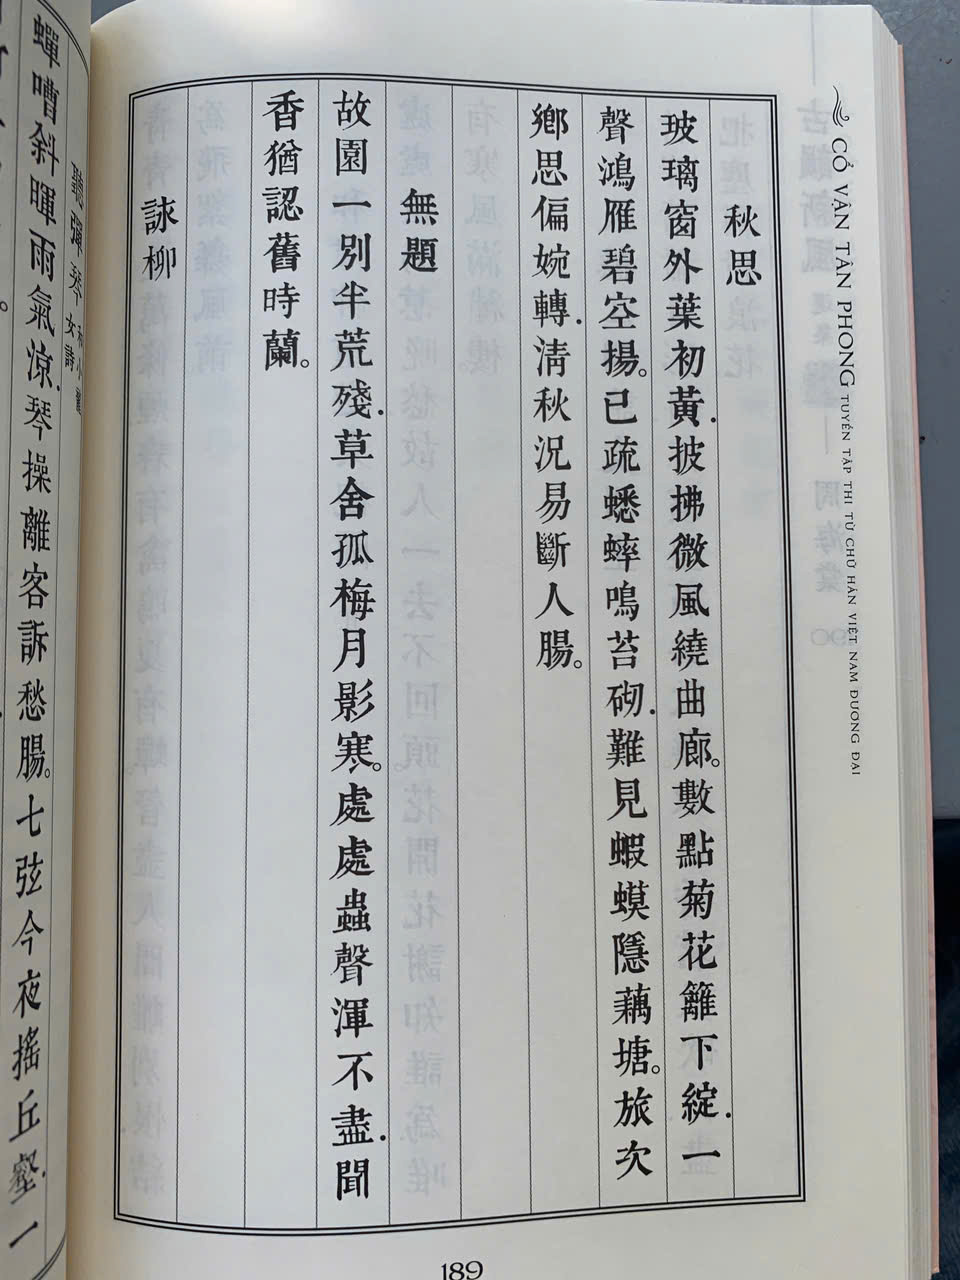 CỔ VẬN TÂN PHONG TUYỂN TẬP THI TỪ CHỮ HÁN VIỆT NAM ĐƯƠNG ĐẠI
秋思
玻璃窗外葉初黃.披拂微風繞曲廊。數點菊花籬下綻.一
聲鴻雁碧空揚。已疏蟋蟀鳴苔砌.難見蝦蟆隱藕塘。旅次
鄉思偏婉轉.淸秋況易斷人腸。
無題
故園一別半荒殘.草舍孤梅月影寒。處處蟲聲渾不盡.聞
香猶認舊時蘭。
詠柳
189
聽彈琴
女詩
蟬嘈斜暉雨氣涼.琴操離客訴愁腸。七弦今夜搖丘壑.一